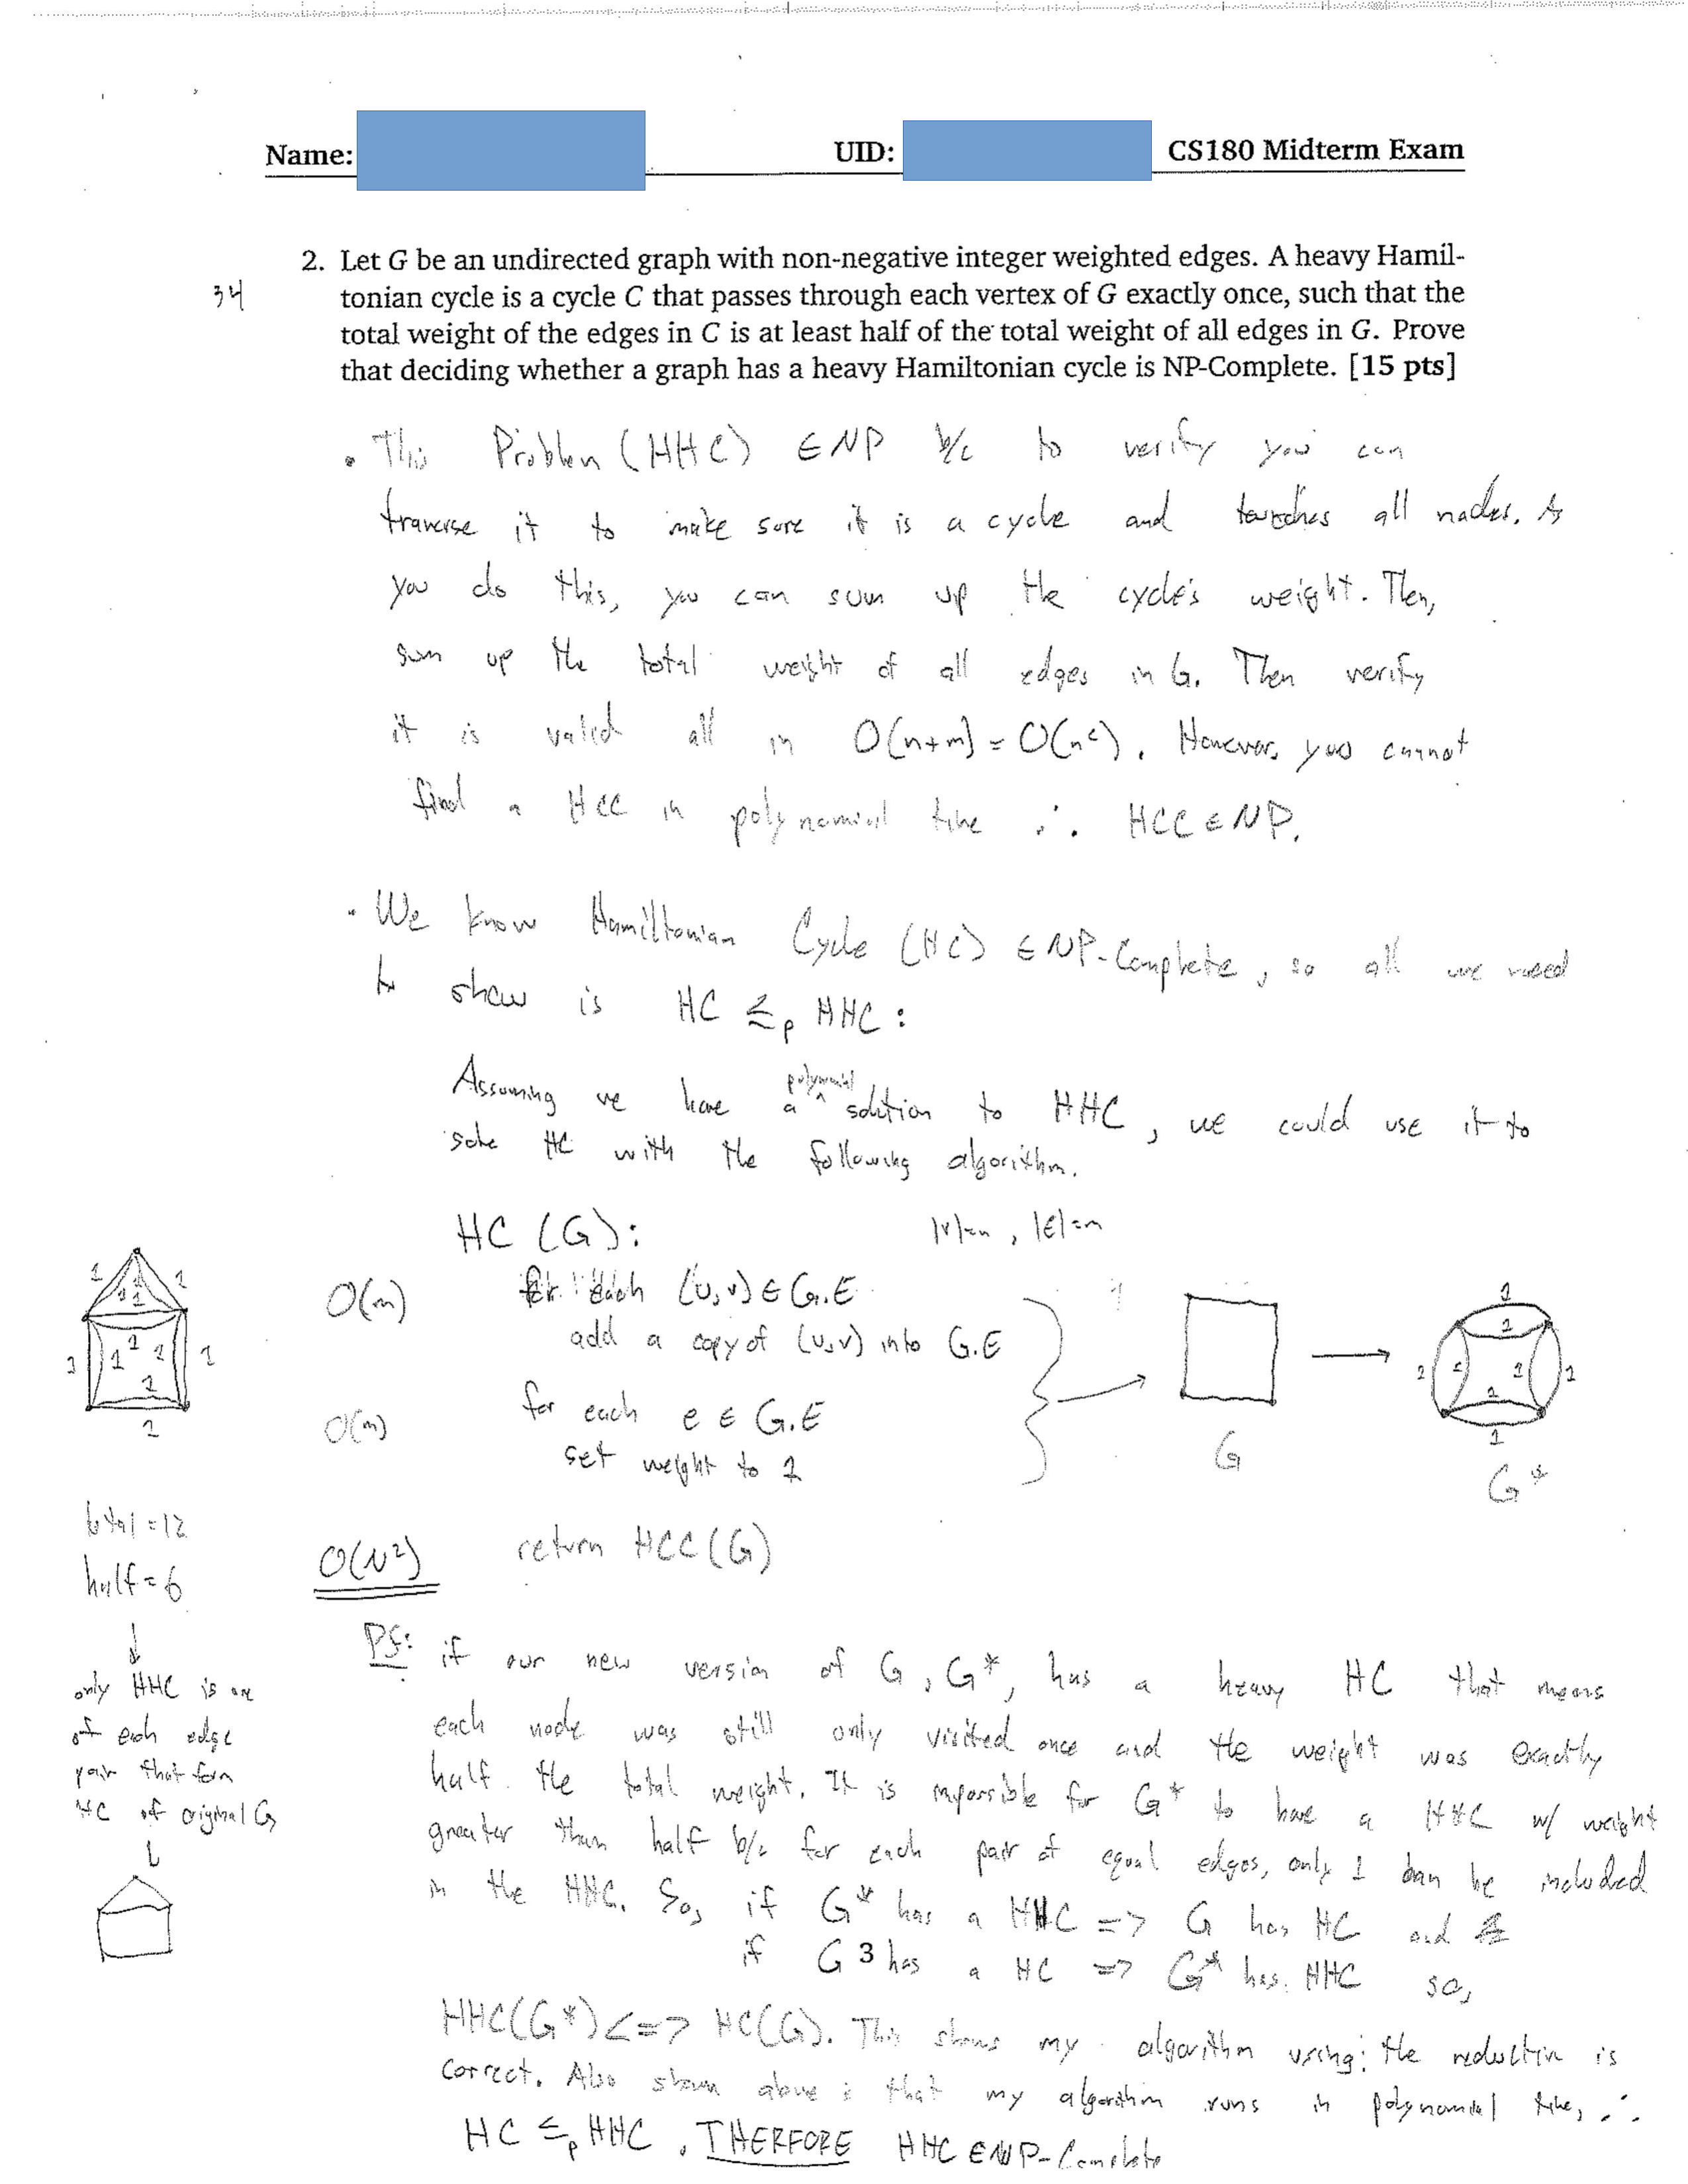 Name:
UID:
CS180 Midterm Exam
34
2. Let G be an undirected graph with non-negative integer weighted edges. A heavy Hamil-
tonian cycle is a cycle C that passes through each vertex of G exactly once, such that the
total weight of the edges in C is at least half of the total weight of all edges in G. Prove
that deciding whether a graph has a heavy Hamiltonian cycle is NP-Complete. [15 pts]
• This Problem (HHC) ∈ NP b/c to verify you can
traverse it to make sure it is a cycle and touches all nodes. As
you do this, you can sum up the cycle's weight. Then,
sum up the total weight of all edges in G. Then verify
it is valid all in O(n+m) = O(n²). However, you cannot
find a HCC in polynomial time ∴ HCC ∈ NP.
• We know Hamiltonian Cycle (HC) ∈ NP-Complete, so all we need
to show is HC ≤p HHC:
Assuming we have a polynomial solution to HHC, we could use it to
solve HC with the following algorithm.
HC (G):
|V|=n, |E|=m
O(m)
for each (u,v) ∈ G.E
add a copy of (u,v) into G.E
O(m)
for each e ∈ G.E
set weight to 1
O(N²)
return HCC(G)
1 1
1 1 1
1 1 1 1
1
1
G
1
1
1 1 1 1
1
1
G*
total = 12
half = 6
only HHC is one
of each edge
pair that form
HC of original G
Pf: if our new version of G, G*, has a heavy HC that means
each node was still only visited once and the weight was exactly
half the total weight. It is impossible for G* to have a HHC w/ weight
greater than half b/c for each pair of equal edges, only 1 can be included
in the HHC. So, if G* has a HHC => G has HC and
if G has a HC => G* has HHC so,
3
HHC(G*) <=> HC(G). This shows my algorithm using the reduction is
correct. Also shown above is that my algorithm runs in polynomial time, ∴
HC ≤p HHC, THEREFORE HHC ∈ NP-Complete